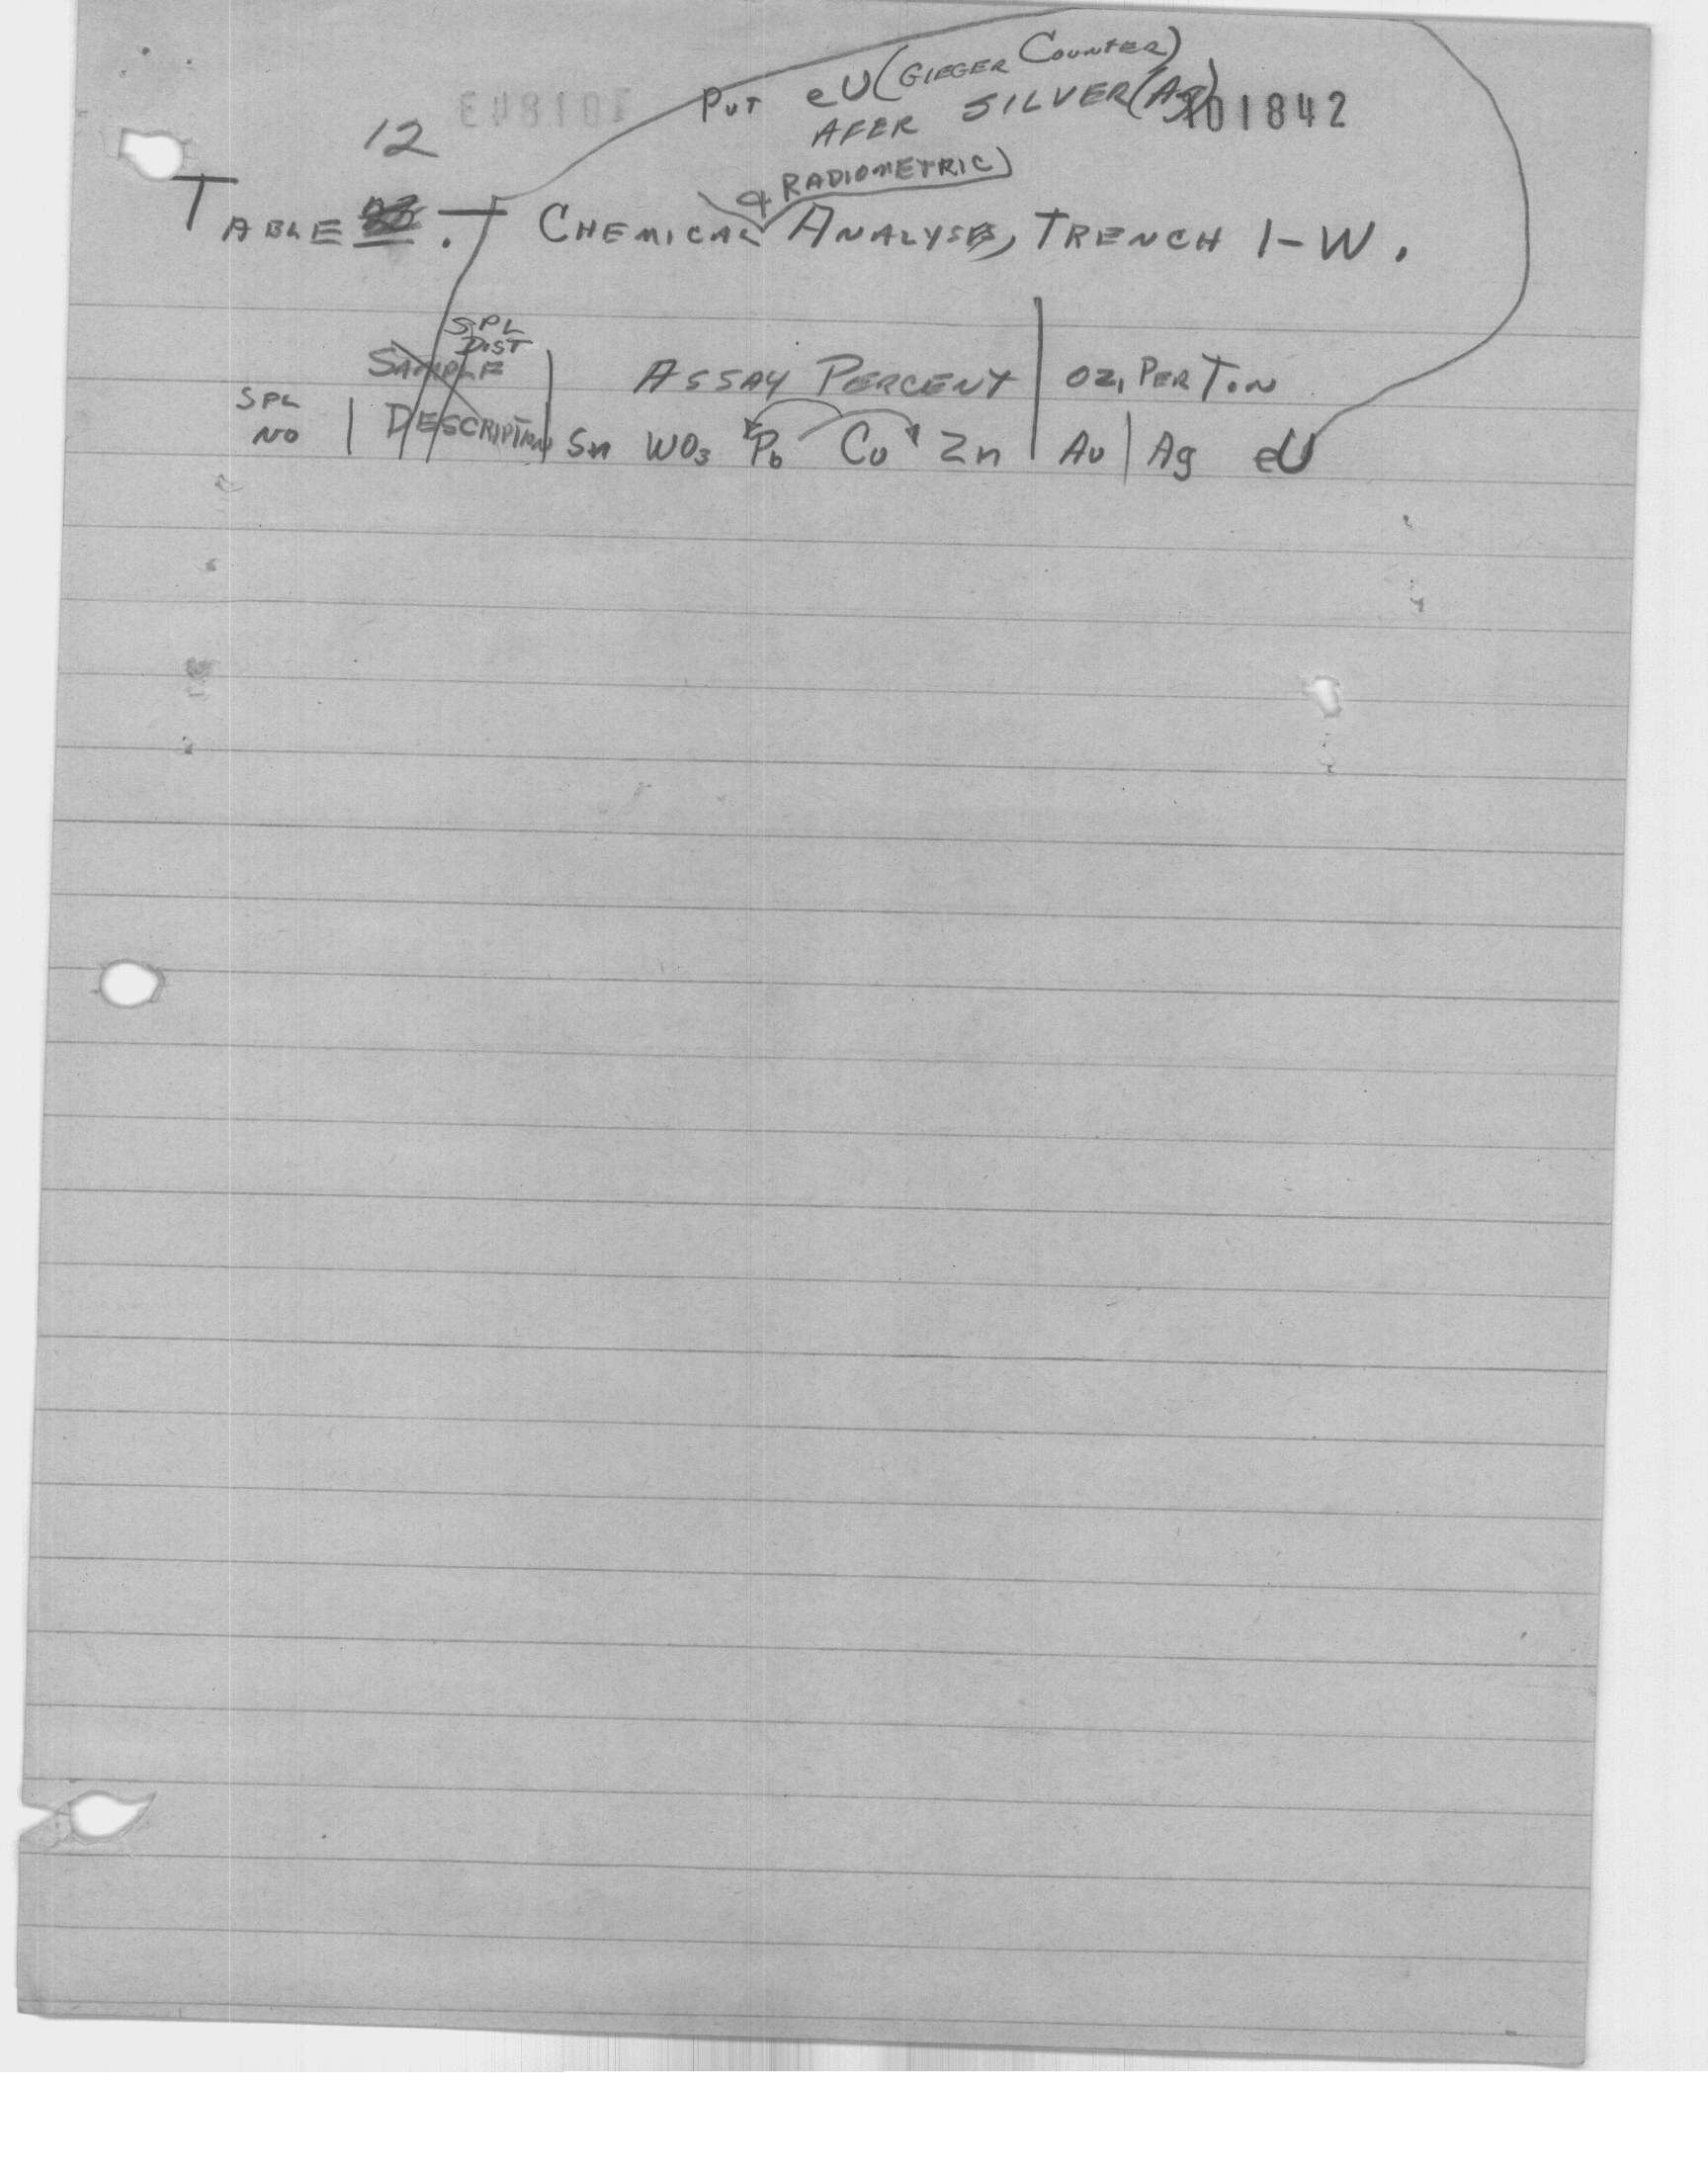 PUT eU (GIEGER COUNTER)
AFER SILVER (Ag)
101842
12
& RADIOMETRIC
TABLE . — CHEMICAL ANALYSES, TRENCH 1-W.
SPL
DIST
SAMPLE
ASSAY PERCENT OZ. PER TON
SPL
NO
DESCRIPTION
Sn WO3 Pb Cu Zn Au Ag eU